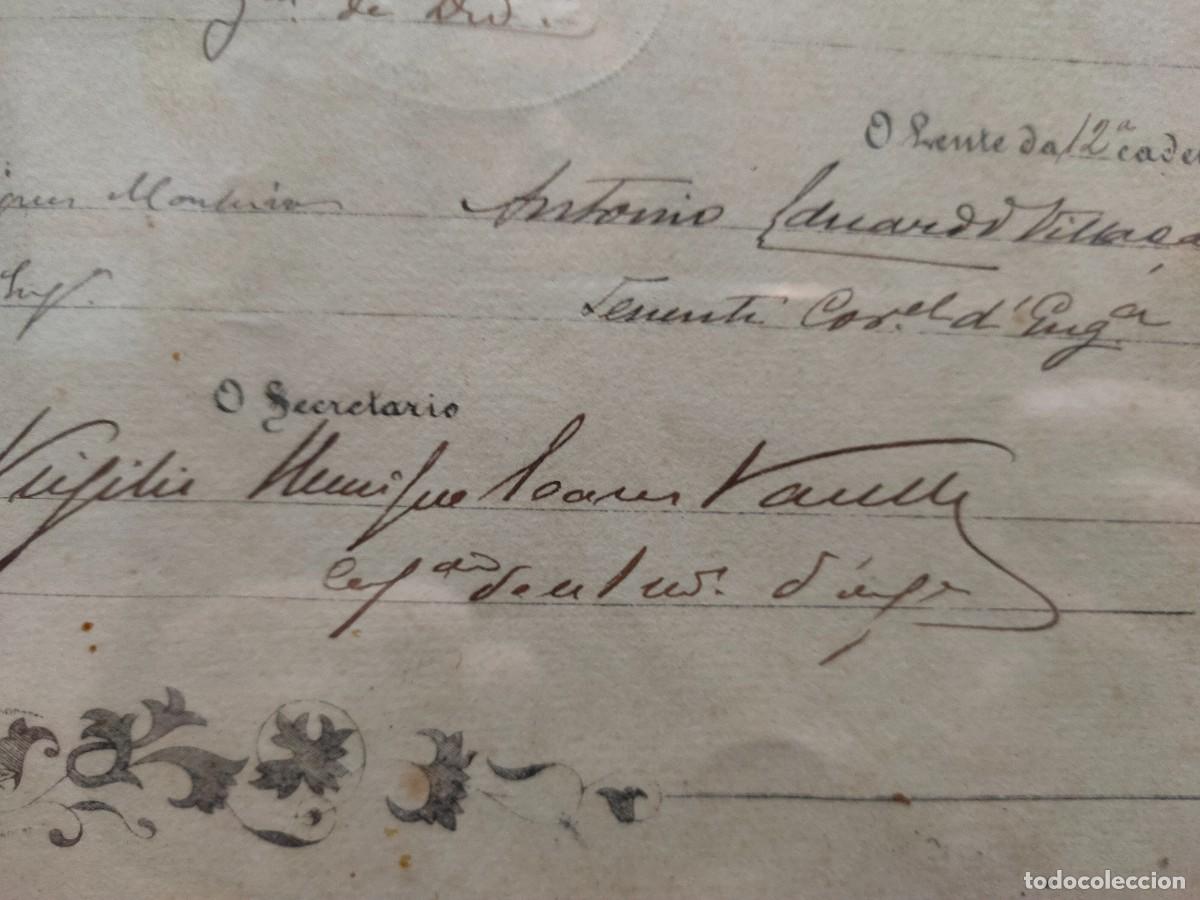 de Div.
O Lente da 12ª cade
Monteiro Antonio Eduardo Villaça
Tenente Cor.el d'Eng.a
O Secretario
Virgilio Henrique Soares Varella
Cap.
todocoleccion